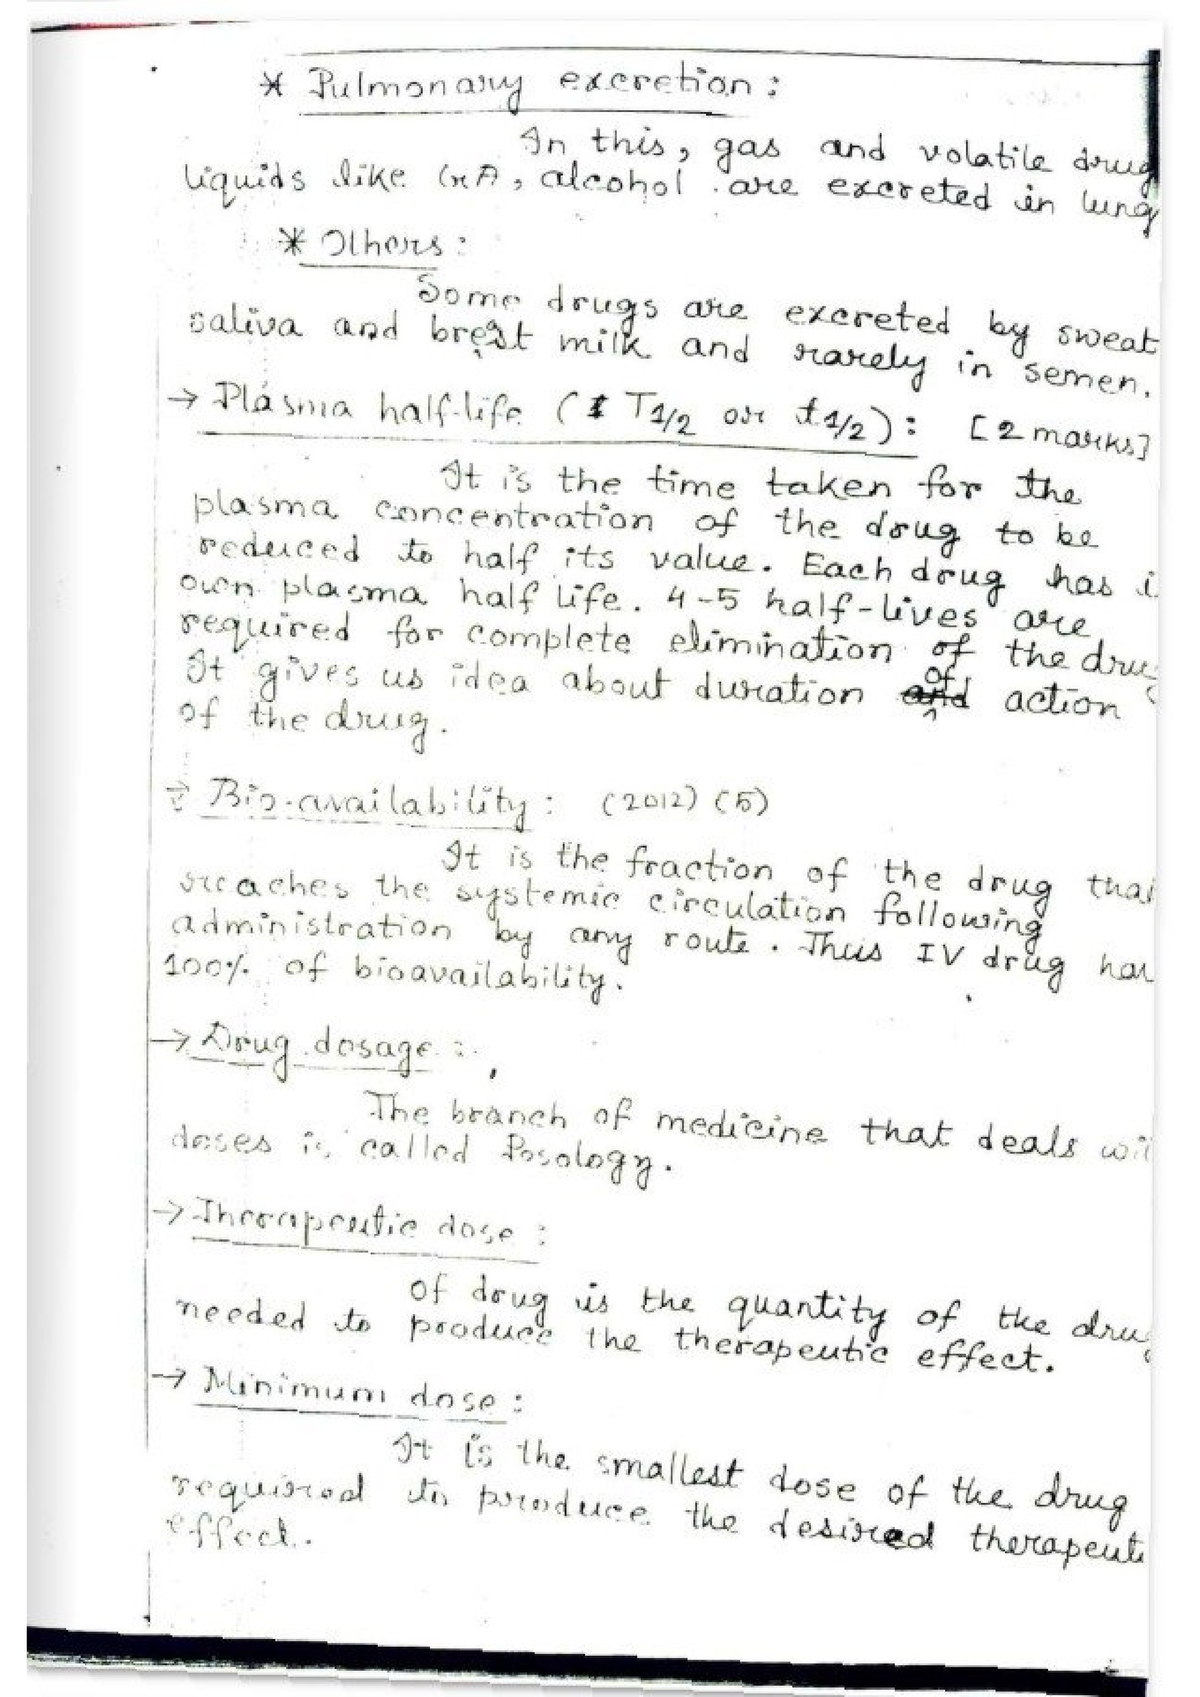 * Pulmonary excretion :
In this, gas and volatile drug
liquids like GA, alcohol are excreted in lung
* Others :
Some drugs are excreted by sweat
saliva and breast milk and rarely in semen.
→ Plasma half-life ( T1/2 or t1/2) : [2 marks]
It is the time taken for the
plasma concentration of the drug to be
reduced to half its value. Each drug has i
own plasma half life. 4-5 half-lives are
required for complete elimination of the drug
It gives us idea about duration of action
of the drug.
→ Bio-availability : (2012) (5)
It is the fraction of the drug that
reaches the systemic circulation following
administration by any route. Thus IV drug has
100% of bioavailability.
→ Drug dosage :
The branch of medicine that deals wit
doses is called Posology.
→ Therapeutic dose :
of drug is the quantity of the drug
needed to produce the therapeutic effect.
→ Minimum dose :
It is the smallest dose of the drug
required to produce the desired therapeuti
effect.